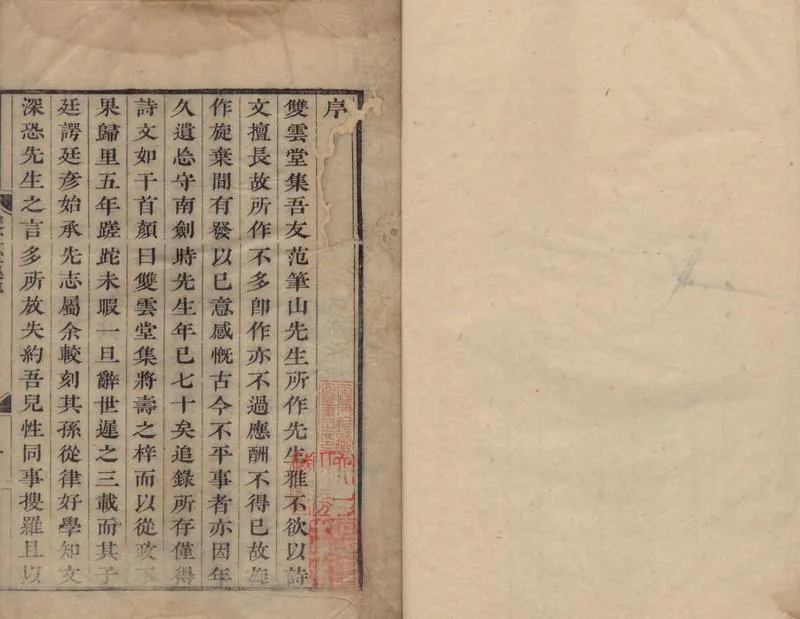 序
雙雲堂集吾友范筆山先生所作先生雅不欲以詩
文擅長故所作不多卽作亦不過應酬不得已故旋
作旋棄間有發以己意感慨古今不平事者亦因年
久遺忘守南劍時先生年已七十矣追錄所存僅得
詩文如干首顏曰雙雲堂集將壽之梓而以從政下
果歸里五年蹉跎未暇一旦辭世遲之三載而其子
廷諤廷彥始承先志屬余較刻其孫從律好學知文
深恐先生之言多所放失約吾兒性同事搜羅且以